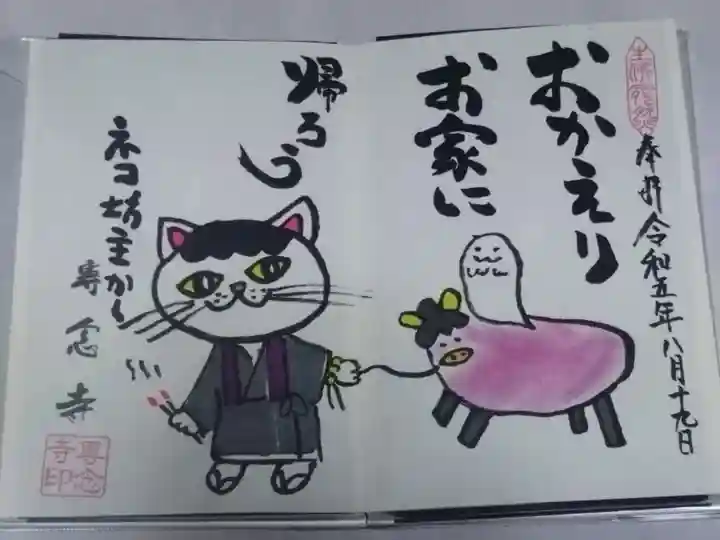 奉拝 令和五年八月十九日
おかえり
お家に
帰ろう
ネコ坊主から
専念寺
専念
寺印